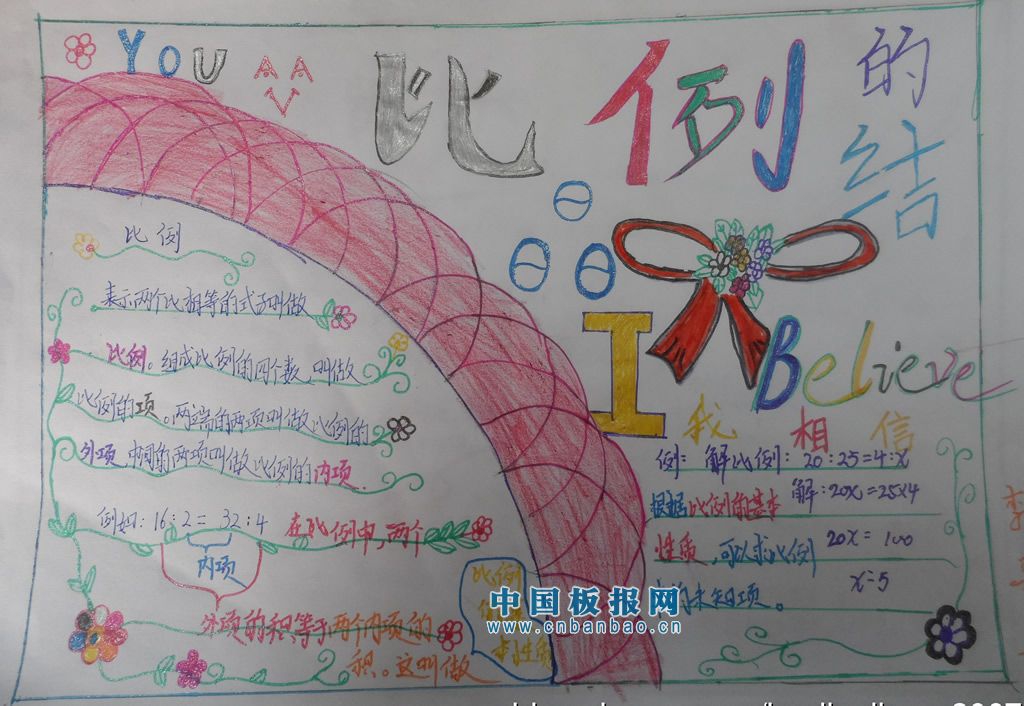 You
比例的结
I Believe
我相信
比例
表示两个比相等的式子叫做
比例。组成比例的四个数,叫做
比例的项。两端的两项叫做比例的
外项,中间的两项叫做比例的内项.
例如:16:2=32:4 在比例中,两个
内项
外项的积等于两个内项的
积。这叫做
比例
本性质
例:解比例:20:25=4:x
根据比例的基本 解:20x=25×4
性质,可以求比例 20x=100
未知项。 x=5
中国板报网
www.cnbanbao.cn